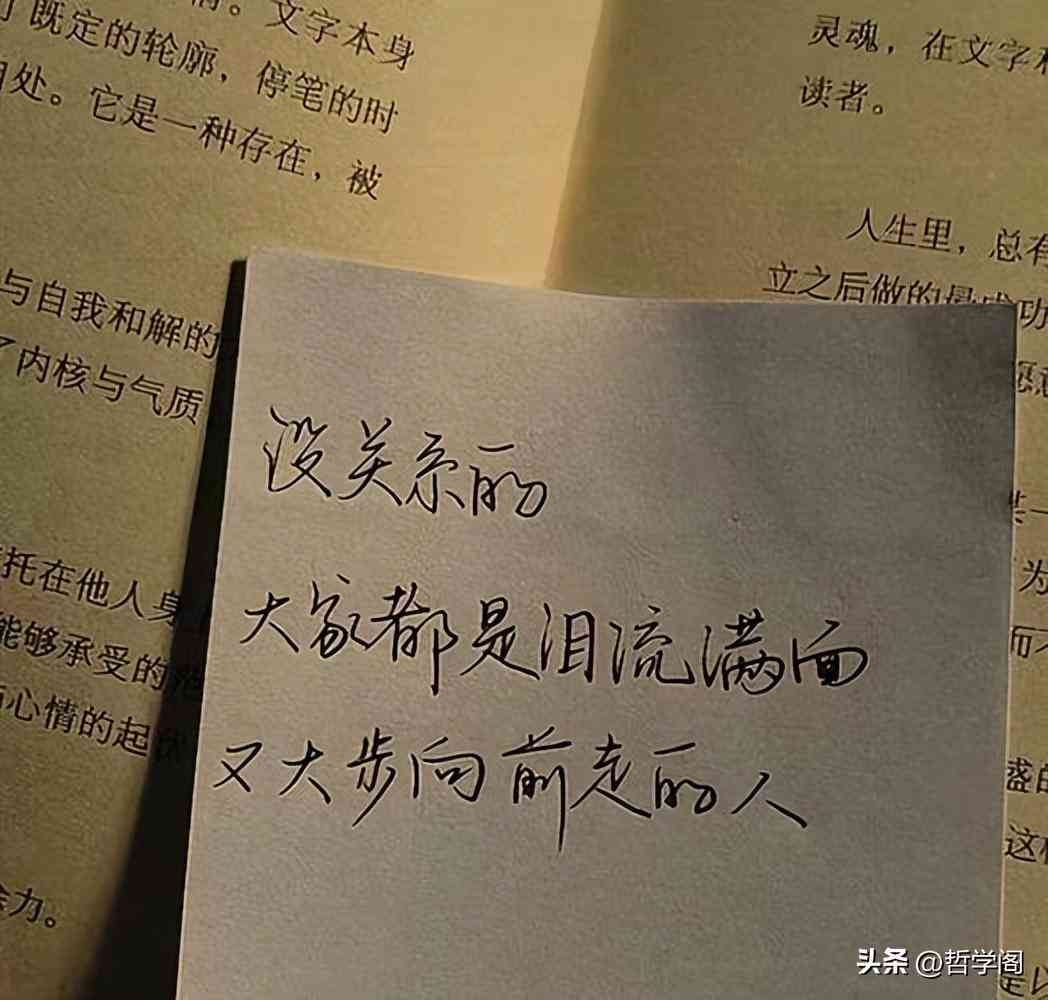 情。文字本身
既定的轮廓，停笔的时
处。它是一种存在，被
与自我和解的
了内核与气质
托在他人身
能够承受的
心情的起伏
余力。
灵魂，在文字
读者。
人生里，总有
立之后做的最成功
愿意
某一
为
而不
盛的
这
是以
没关系的
大家都是泪流满面
又大步向前走的人
头条 @哲学阁